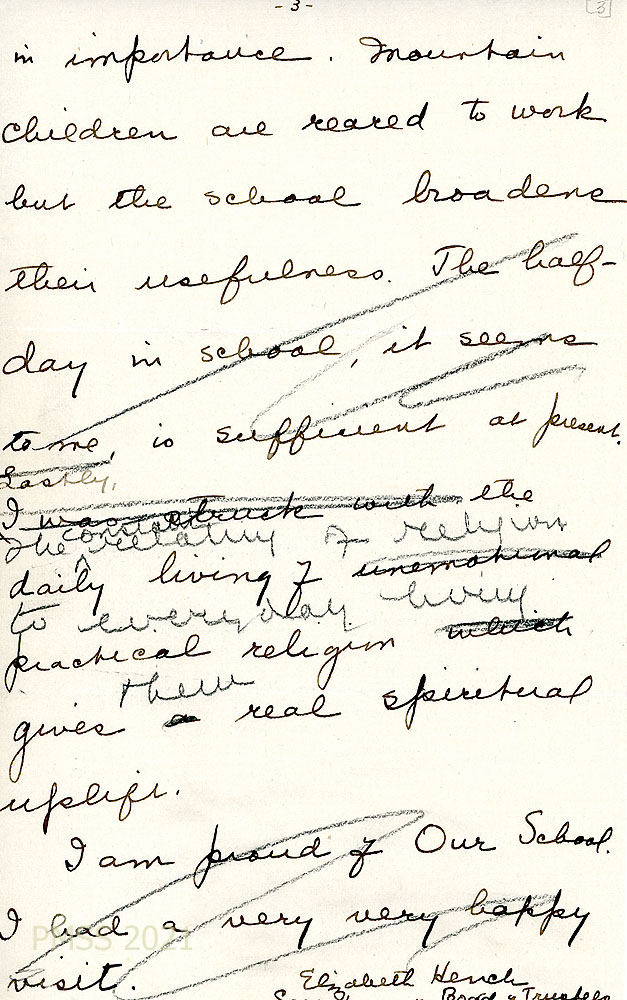 - 3 -
[3]
in importance. Mountain
children are reared to work
but the school broadens
their usefulness. The half-
day in school, it seems
to me, is sufficient at present.
Lastly,
I was struck with the
The relating of religion
daily living of unemotional
to everyday living
practical religion which
them
gives a real spiritual
uplift.
I am proud of Our School.
I had a very very happy
visit.
PMSS 2021
Elizabeth Hench
Board of Trustees